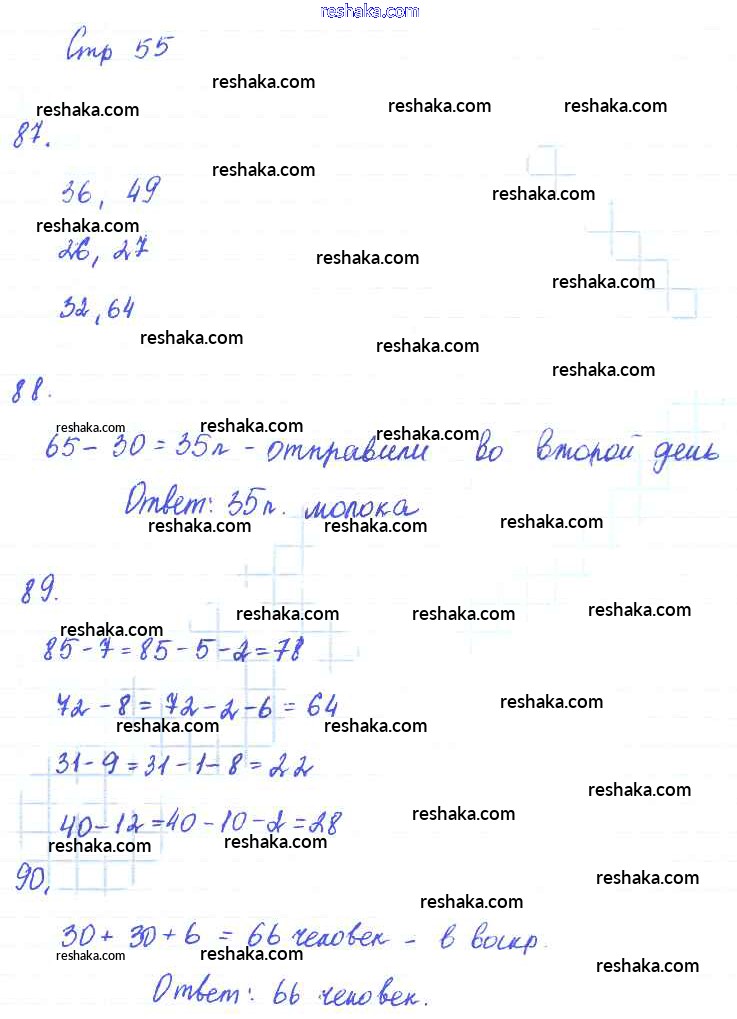 reshaka.com
Стр 55
reshaka.com
reshaka.com reshaka.com reshaka.com
87.
reshaka.com
36, 49
reshaka.com
reshaka.com
26, 27
reshaka.com
reshaka.com
32, 64
reshaka.com
reshaka.com
reshaka.com
88.
reshaka.com reshaka.com reshaka.com
65 - 30 = 35л - отправили во второй день
Ответ: 35л. молока
reshaka.com reshaka.com reshaka.com
89.
reshaka.com reshaka.com reshaka.com
reshaka.com
85 - 7 = 85 - 5 - 2 = 78
72 - 8 = 72 - 2 - 6 = 64
reshaka.com
reshaka.com reshaka.com
31 - 9 = 31 - 1 - 8 = 22
reshaka.com
reshaka.com
40 - 12 = 40 - 10 - 2 = 28
reshaka.com reshaka.com
90.
reshaka.com
reshaka.com
30 + 30 + 6 = 66 человек - в воскр.
reshaka.com reshaka.com
reshaka.com
Ответ: 66 человек.